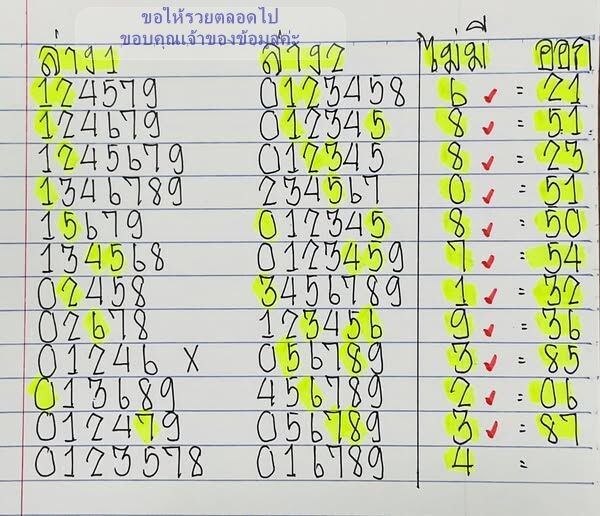 ขอให้รวยตลอดไป
ขอบคุณเจ้าของข้อมูลค่ะ
ล่าง1 ล่าง2 ไม่มี ออก
124579 0123458 6 ✓ = 21
124679 012345 8 ✓ = 51
1245679 012345 8 ✓ = 23
1346789 234567 0 ✓ = 51
15679 012345 8 ✓ = 50
134568 0123459 7 ✓ = 54
02458 3456789 1 ✓ = 32
02678 123456 9 ✓ = 36
01246 x 056789 3 ✓ = 85
013689 456789 2 ✓ = 06
012479 056789 3 ✓ = 87
0123578 016789 4 =